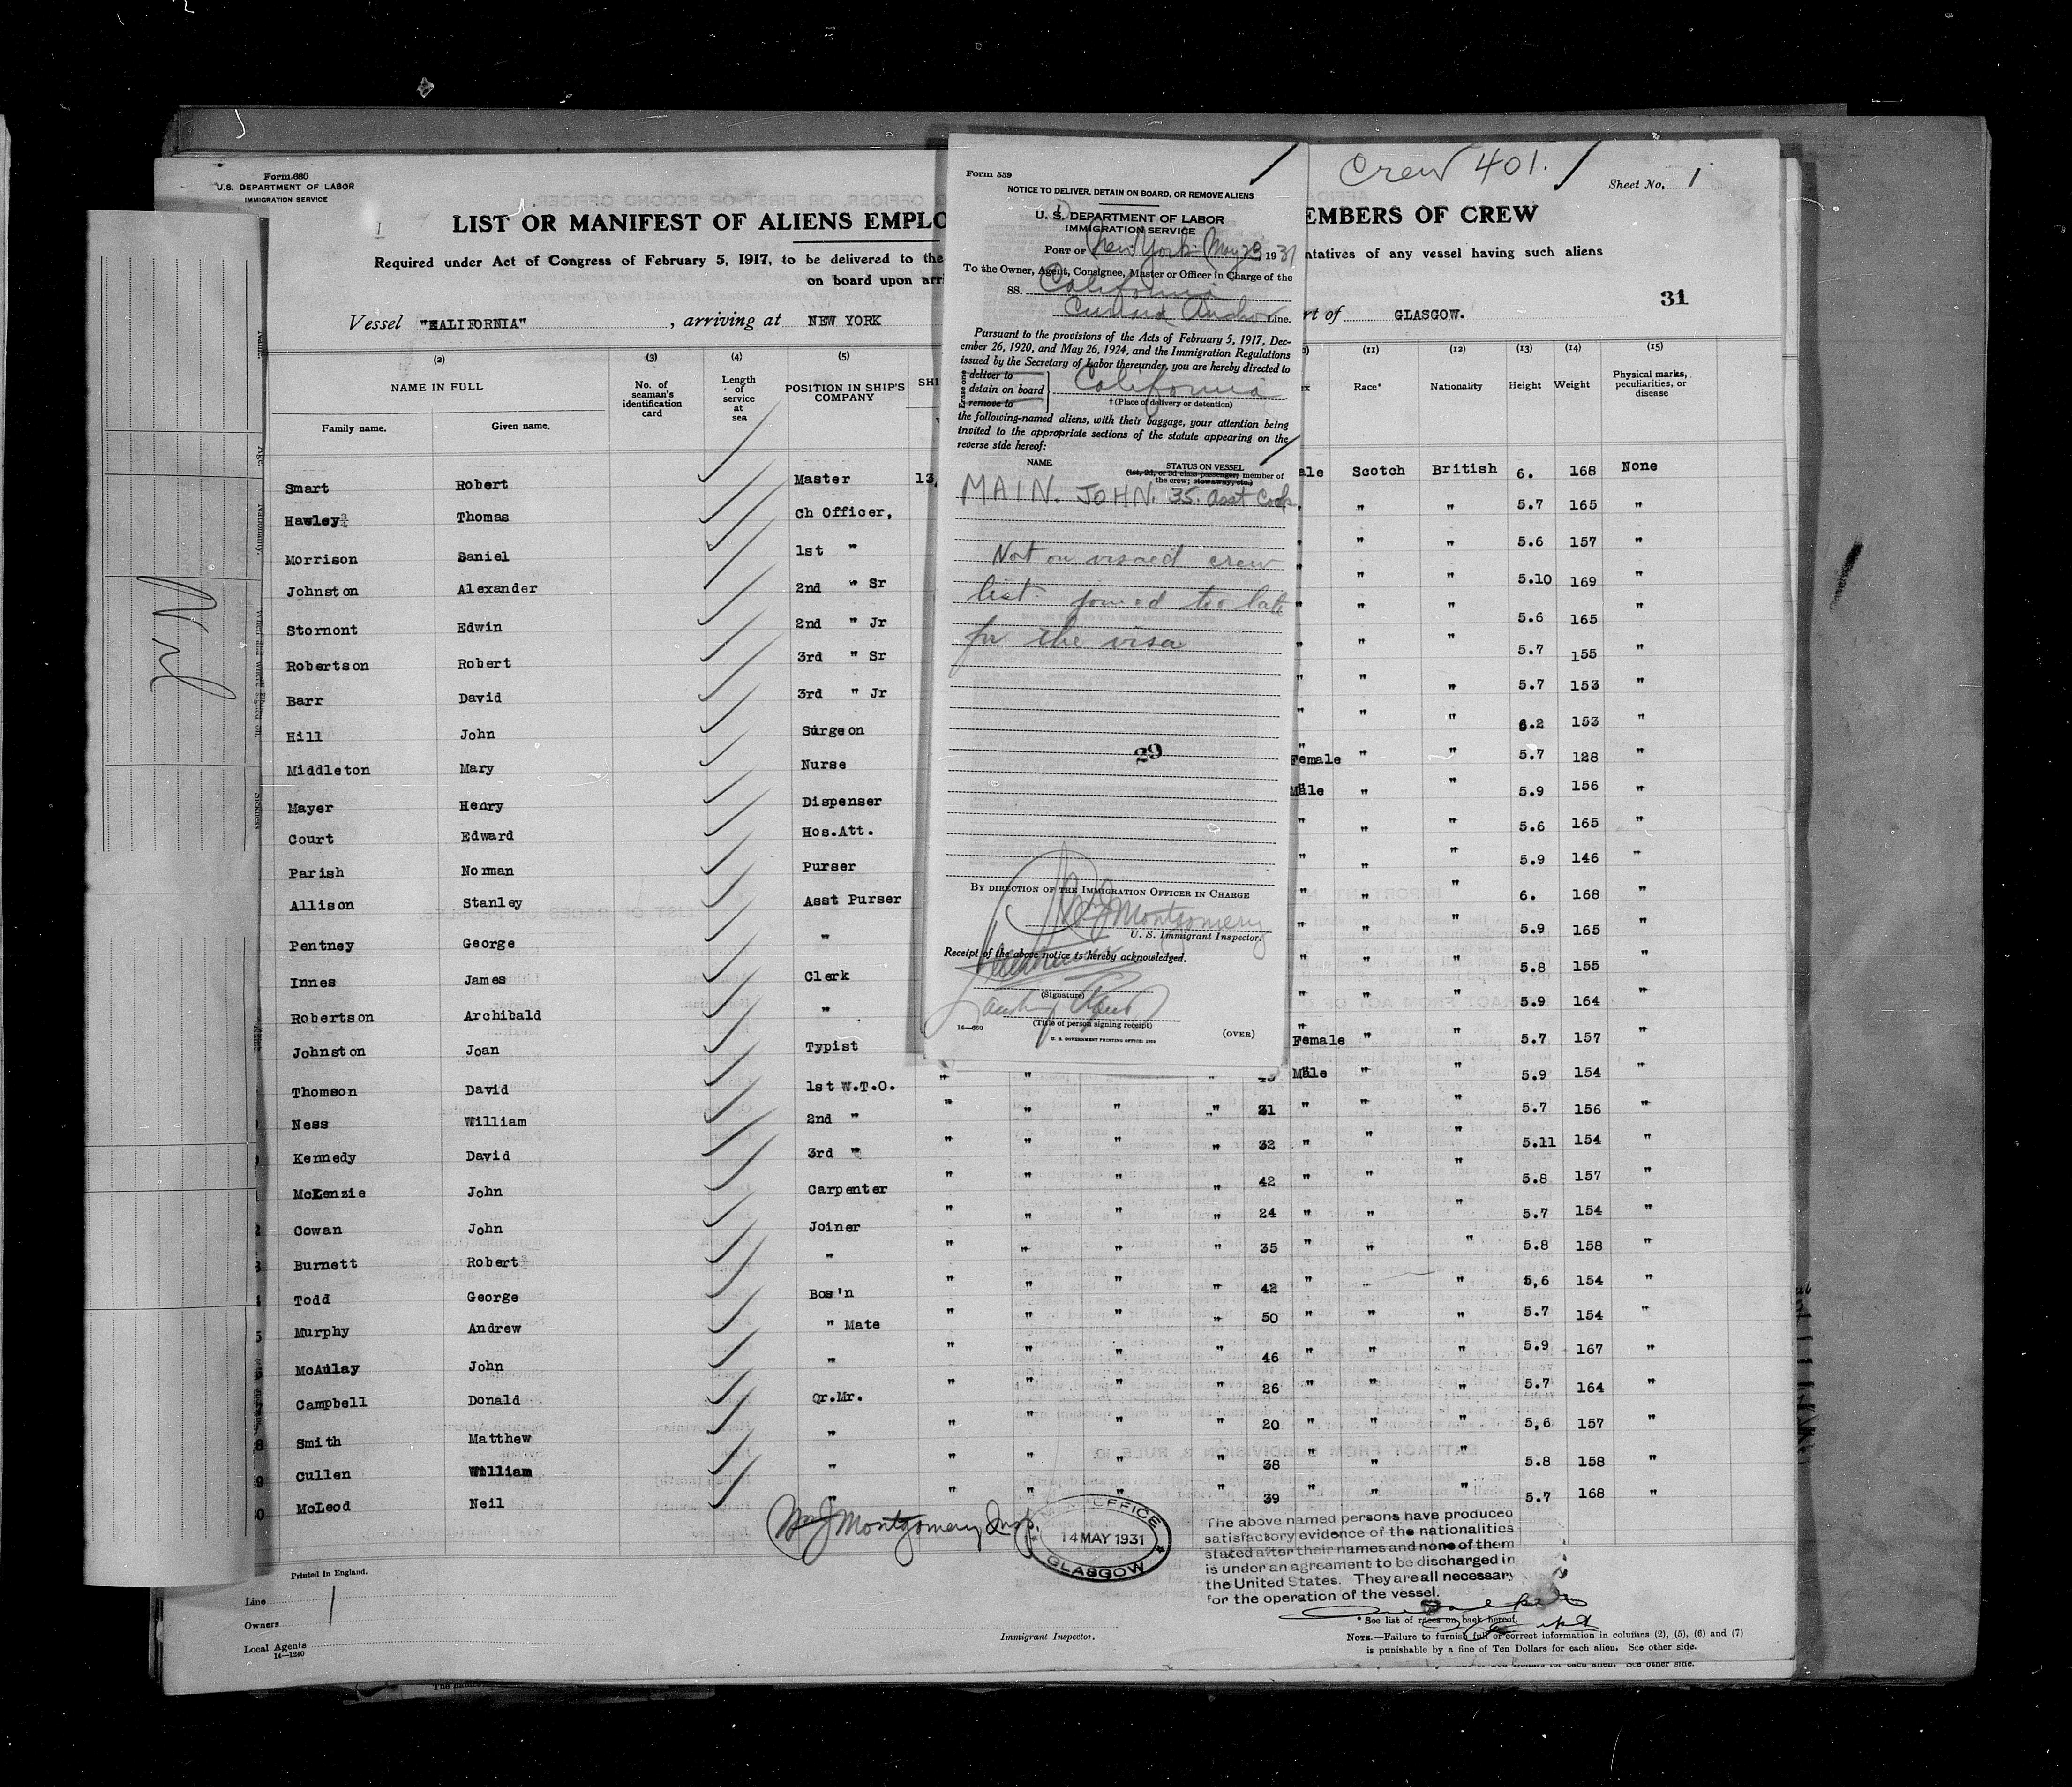 Form 680
U.S. DEPARTMENT OF LABOR
IMMIGRATION SERVICE
Crew 401.
Sheet No. 1
LIST OR MANIFEST OF ALIENS EMPLO
EMBERS OF CREW
Required under Act of Congress of February 5, 1917, to be delivered to the
ntatives of any vessel having such aliens
on board upon arri
31
Vessel "KALIFORNIA", arriving at NEW YORK
rt of GLASGOW.
(2) (3) (4) (5) (11) (12) (13) (14) (15)
NAME IN FULL
Family name. Given name.
No. of seaman's identification card
Length of service at sea
POSITION IN SHIP'S COMPANY
SHI
Race* Nationality Height Weight Physical marks, peculiarities, or disease
Smart Robert Master 13, ale Scotch British 6. 168 None
Hawley Thomas Ch Officer, " " 5.7 165 "
Morrison Saniel 1st " " " " 5.6 157 "
Johnston Alexander 2nd " Sr " " " 5.10 169 "
Stornont Edwin 2nd " Jr " " " 5.6 165 "
Robertson Robert 3rd " Sr " " " 5.7 155 "
Barr David 3rd " Jr " " " 5.7 153 "
Hill John Surgeon " " " 6.2 153 "
Middleton Mary Nurse Female " " 5.7 128 "
Mayer Henry Dispenser Male " " 5.9 156 "
Court Edward Hos.Att. " " " 5.6 165 "
Parish Norman Purser " " " 5.9 146 "
Allison Stanley Asst Purser " " " 6. 168 "
Pentney George " " " " 5.9 165 "
Innes James Clerk " " " 5.8 155 "
Robertson Archibald " " " " 5.9 164 "
Johnston Joan Typist Female " " 5.7 157 "
Thomson David 1st W.T.O. " " " Male " " 5.9 154 "
Ness William 2nd " " " " " 31 " " " 5.7 156 "
Kennedy David 3rd " " " " " 32 " " " 5.11 154 "
McKenzie John Carpenter " " " " 42 " " " 5.8 157 "
Cowan John Joiner " " " " 24 " " " 5.7 154 "
Burnett Robert " " " " " 35 " " " 5.8 158 "
Todd George Bos'n " " " " 42 " " " 5,6 154 "
Murphy Andrew " Mate " " " " 50 " " " 5.7 154 "
McAulay John " " " " " 46 " " " 5.9 167 "
Campbell Donald Qr.Mr. " " " " 26 " " " 5.7 164 "
Smith Matthew " " " " " 20 " " " 5,6 157 "
Cullen William " " " " " 38 " " " 5.8 158 "
McLeod Neil " " " " " 39 " " " 5.7 168 "
Form 559
NOTICE TO DELIVER, DETAIN ON BOARD, OR REMOVE ALIENS
U. S. DEPARTMENT OF LABOR
IMMIGRATION SERVICE
PORT OF New York May 23, 1931
To the Owner, Agent, Consignee, Master or Officer in Charge of the
SS. California
Cunard Anchor Line.
Pursuant to the provisions of the Acts of February 5, 1917, Dec-
ember 26, 1920, and May 26, 1924, and the Immigration Regulations
issued by the Secretary of Labor thereunder, you are hereby directed to
Erase one
deliver to
detain on board
remove to
California
† (Place of delivery or detention)
the following-named aliens, with their baggage, your attention being
invited to the appropriate sections of the statute appearing on the
reverse side hereof:
NAME STATUS ON VESSEL
(1st, 2d, or 3d class passenger; member of
the crew; stowaway, etc.)
MAIN. JOHN. 35. Asst Cook
Not on visaed crew
list. joined too late
for the visa
29
BY DIRECTION OF THE IMMIGRATION OFFICER IN CHARGE
Wm J Montgomery
U. S. Immigrant Inspector.
Receipt of the above notice is hereby acknowledged.
(Signature)
(Title of person signing receipt)
14—660
U. S. GOVERNMENT PRINTING OFFICE: 1930
(OVER)
Wm J Montgomery, Insp.
OFFICE
14 MAY 1931
GLASGOW
The above named persons have produced
satisfactory evidence of the nationalities
stated after their names and none of them
is under an agreement to be discharged in
the United States. They are all necessary
for the operation of the vessel.
Printed in England.
Line
Owners
Local Agents
14—1240
Immigrant Inspector.
* See list of races on back hereof.
NOTE.—Failure to furnish full or correct information in columns (2), (5), (6) and (7)
is punishable by a fine of Ten Dollars for each alien. See other side.